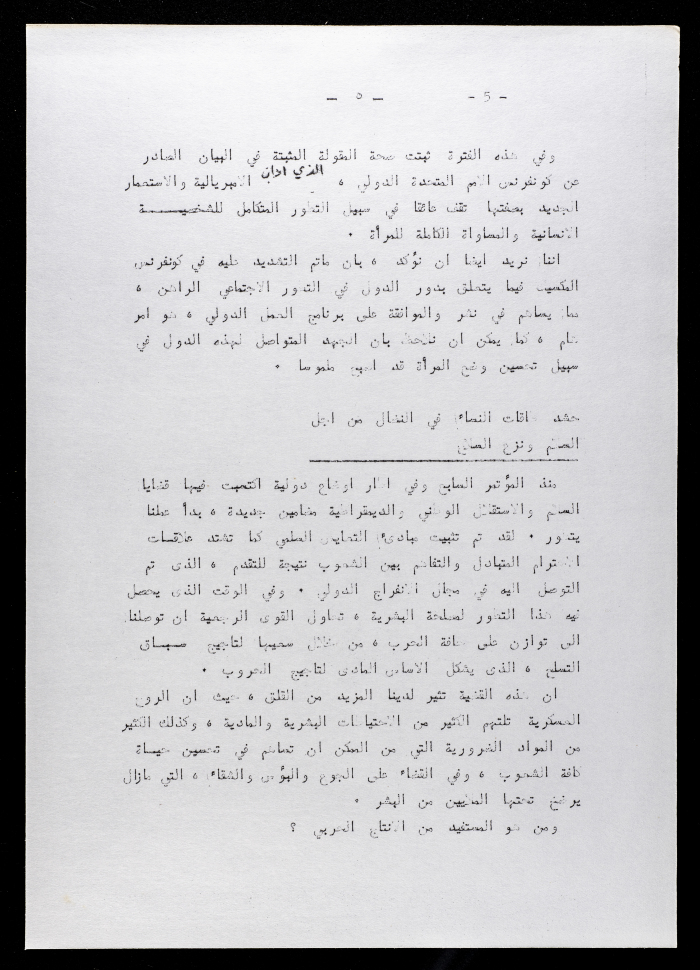 - 5 -
- ٥ -
وفي هذه الفترة ثبتت صحة المقولة المثبتة في البيان الصادر
عن كونفرنس الامم المتحدة الدولي ، الذي ادان الامبريالية والاستعمار
الجديد بصفتها تقف عائقا في سبيل التطور المتكامل للشخصيـــــة
الانسانية والمساواة الكاملة للمرأة .
اننا نريد ايضا ان نؤكد ، بان ماتم التشديد عليه في كونفرنس
المكسيك فيما يتعلق بدور الدول في التطور الاجتماعي الراهن ،
مما يساهم في نشر والموافقة على برنامج العمل الدولي ، هو امر
هام ، كما يمكن ان نلاحظ بان الجهد المتواصل لهذه الدول في
سبيل تحسين وضع المرأة قد اصبح ملموسا .
حشد طاقات النساء في النضال من اجل
السلم ونزع السلاح
منذ المؤتمر السابع وفي اطار اوضاع دولية اكتسبت فيها قضايا
السلم والاستقلال الوطني والديمقراطية مضامين جديدة ، بدأ عملنا
يتطور . لقد تم تثبيت مبادئ التعايش السلمي كما تشتد علاقسات
الاحترام المتبادل والتفاهم بين الشعوب نتيجة للتقدم ، الذى تم
التوصل اليه في مجال الانفراج الدولي . وفي الوقت الذى يحصل
فيه هذا التطور لمصلحة البشرية ، تحاول القوى الرجعية ان توصلنا
الى توازن على حافة الحرب ، من خلال سعيها لتأجيج سبـــاق
التسلح ، الذى يشكل الاساس المادى لتأجيج الحروب .
ان هذه القضية تثير لدينا المزيد من القلق ، حيث ان الروح
العسكرية تلتهم الكثير من الاحتياطات البشرية والمادية ، وكذلك الكثير
من المواد الضرورية التي من الممكن ان تساهم في تحسين حيـاة
كافة الشعوب ، وفي القضاء على الجوع والبؤس والشقاء ، التي مازال
يرضخ تحتها الملايين من البشر .
ومن هو المستفيد من الانتاج الحربي ؟